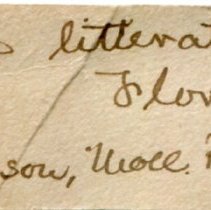 litterat
Flor
son, Moll.